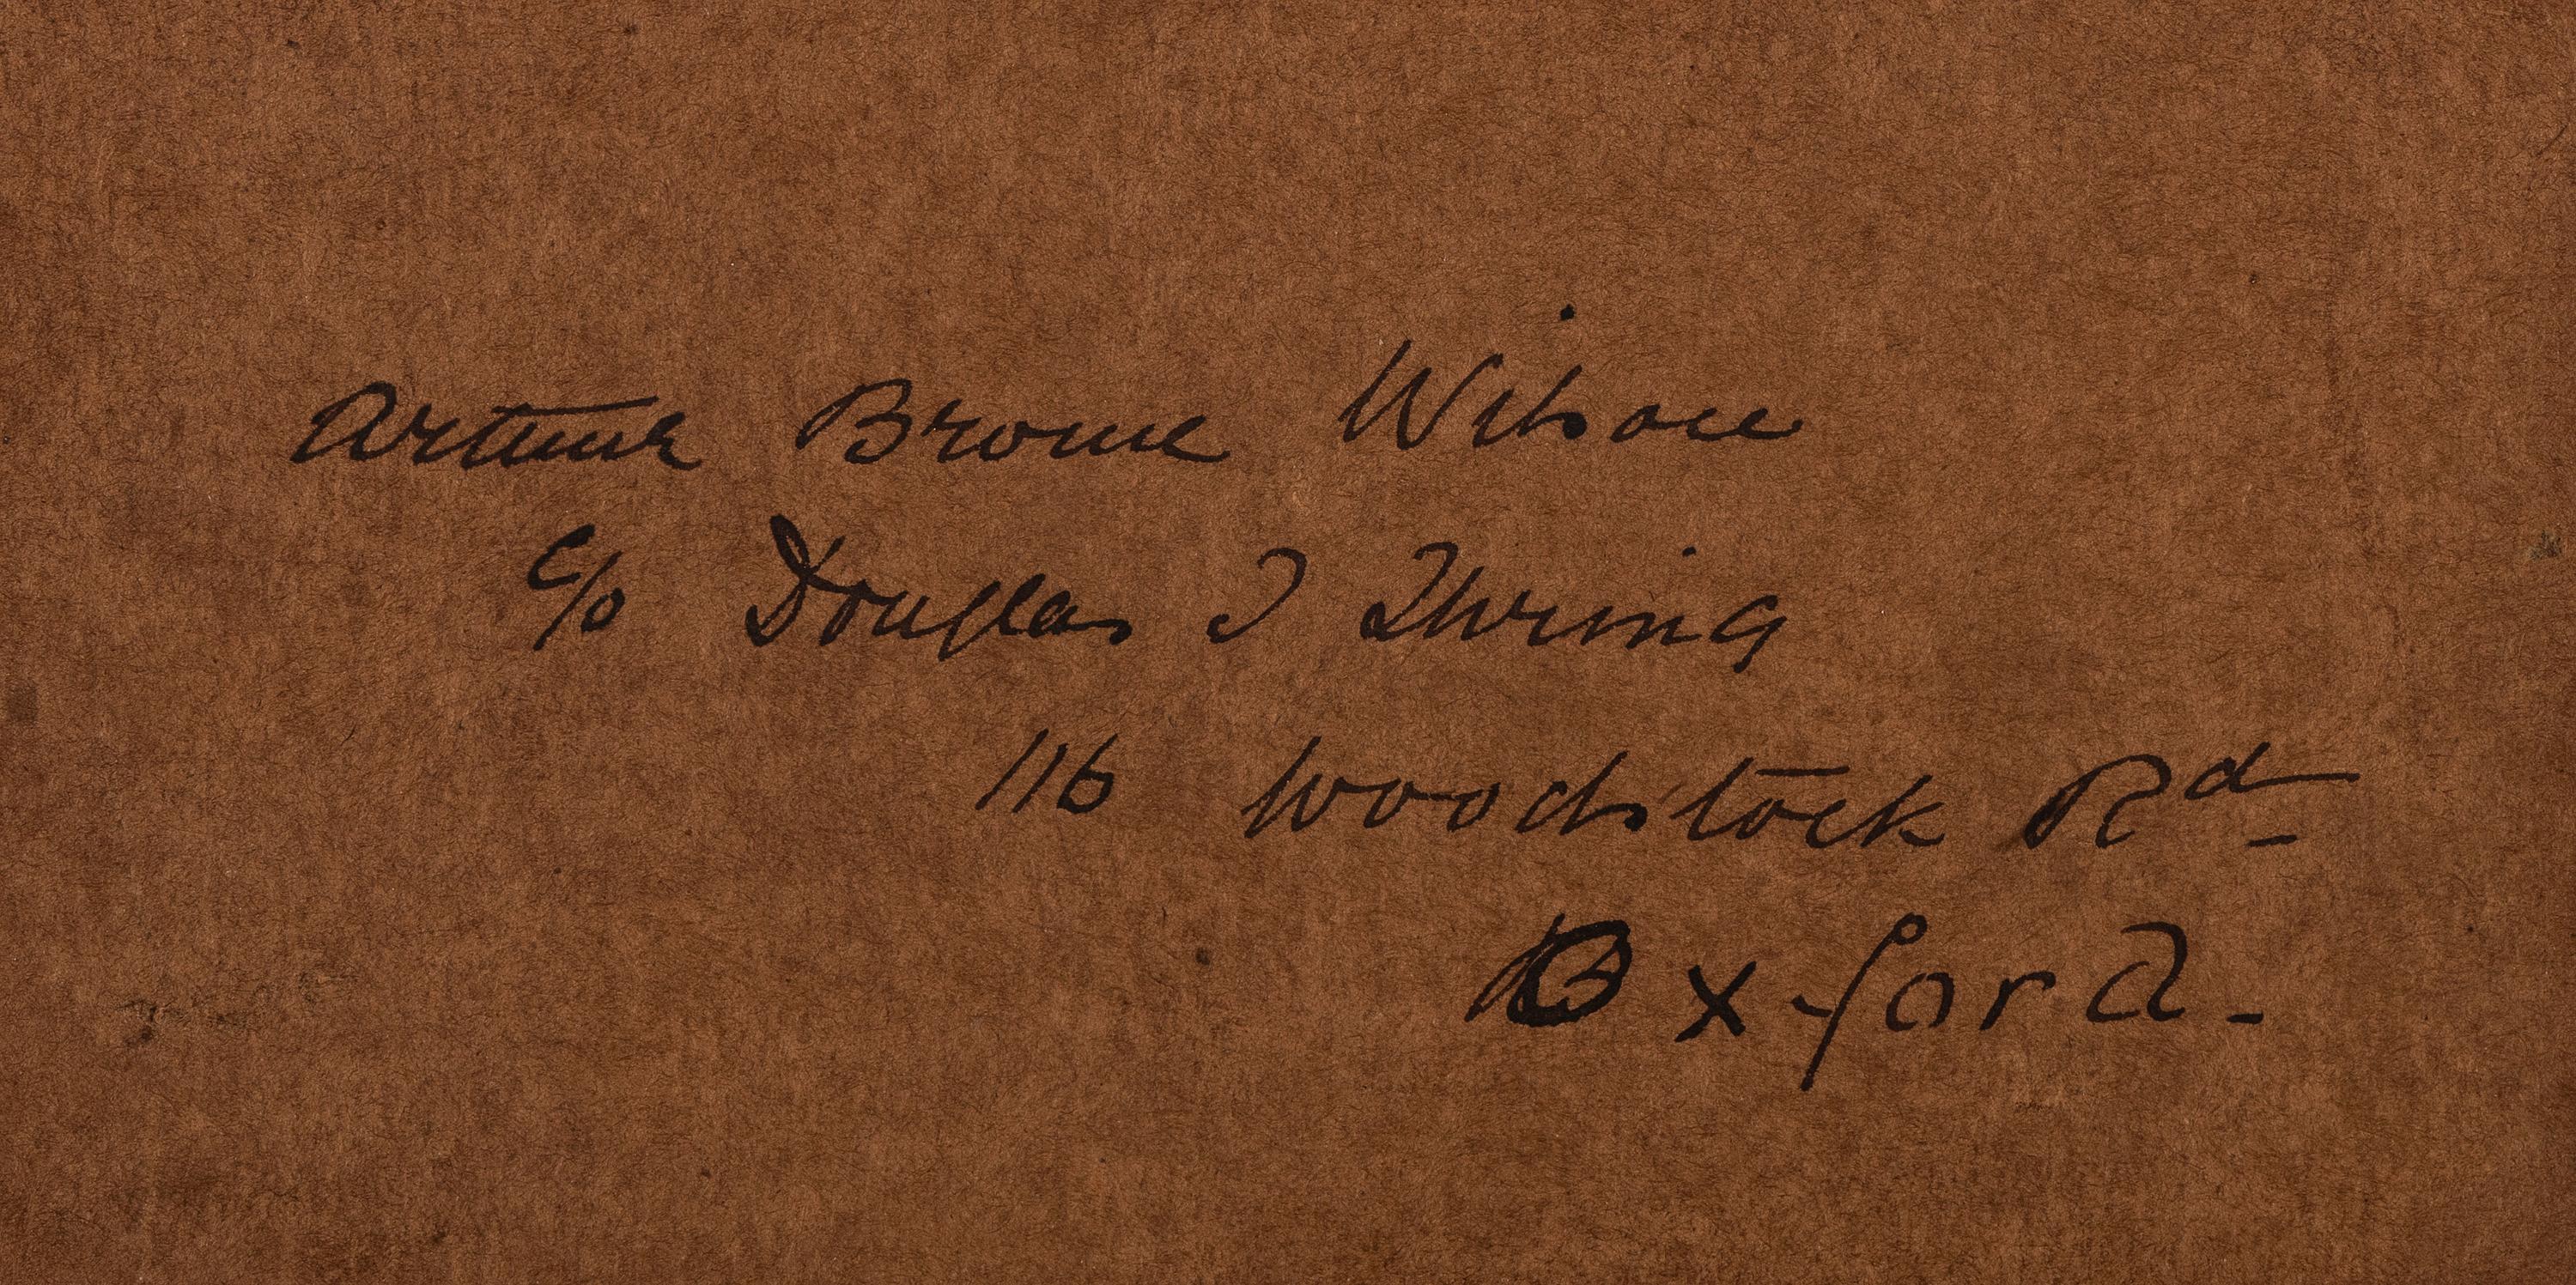 Arthur Brome Wilson
c/o Douglas T Thring
116 Woodstock Rd
Oxford.